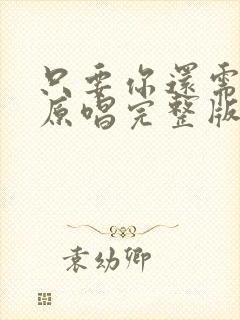 只要你還需
原唱完整版
袁幼卿